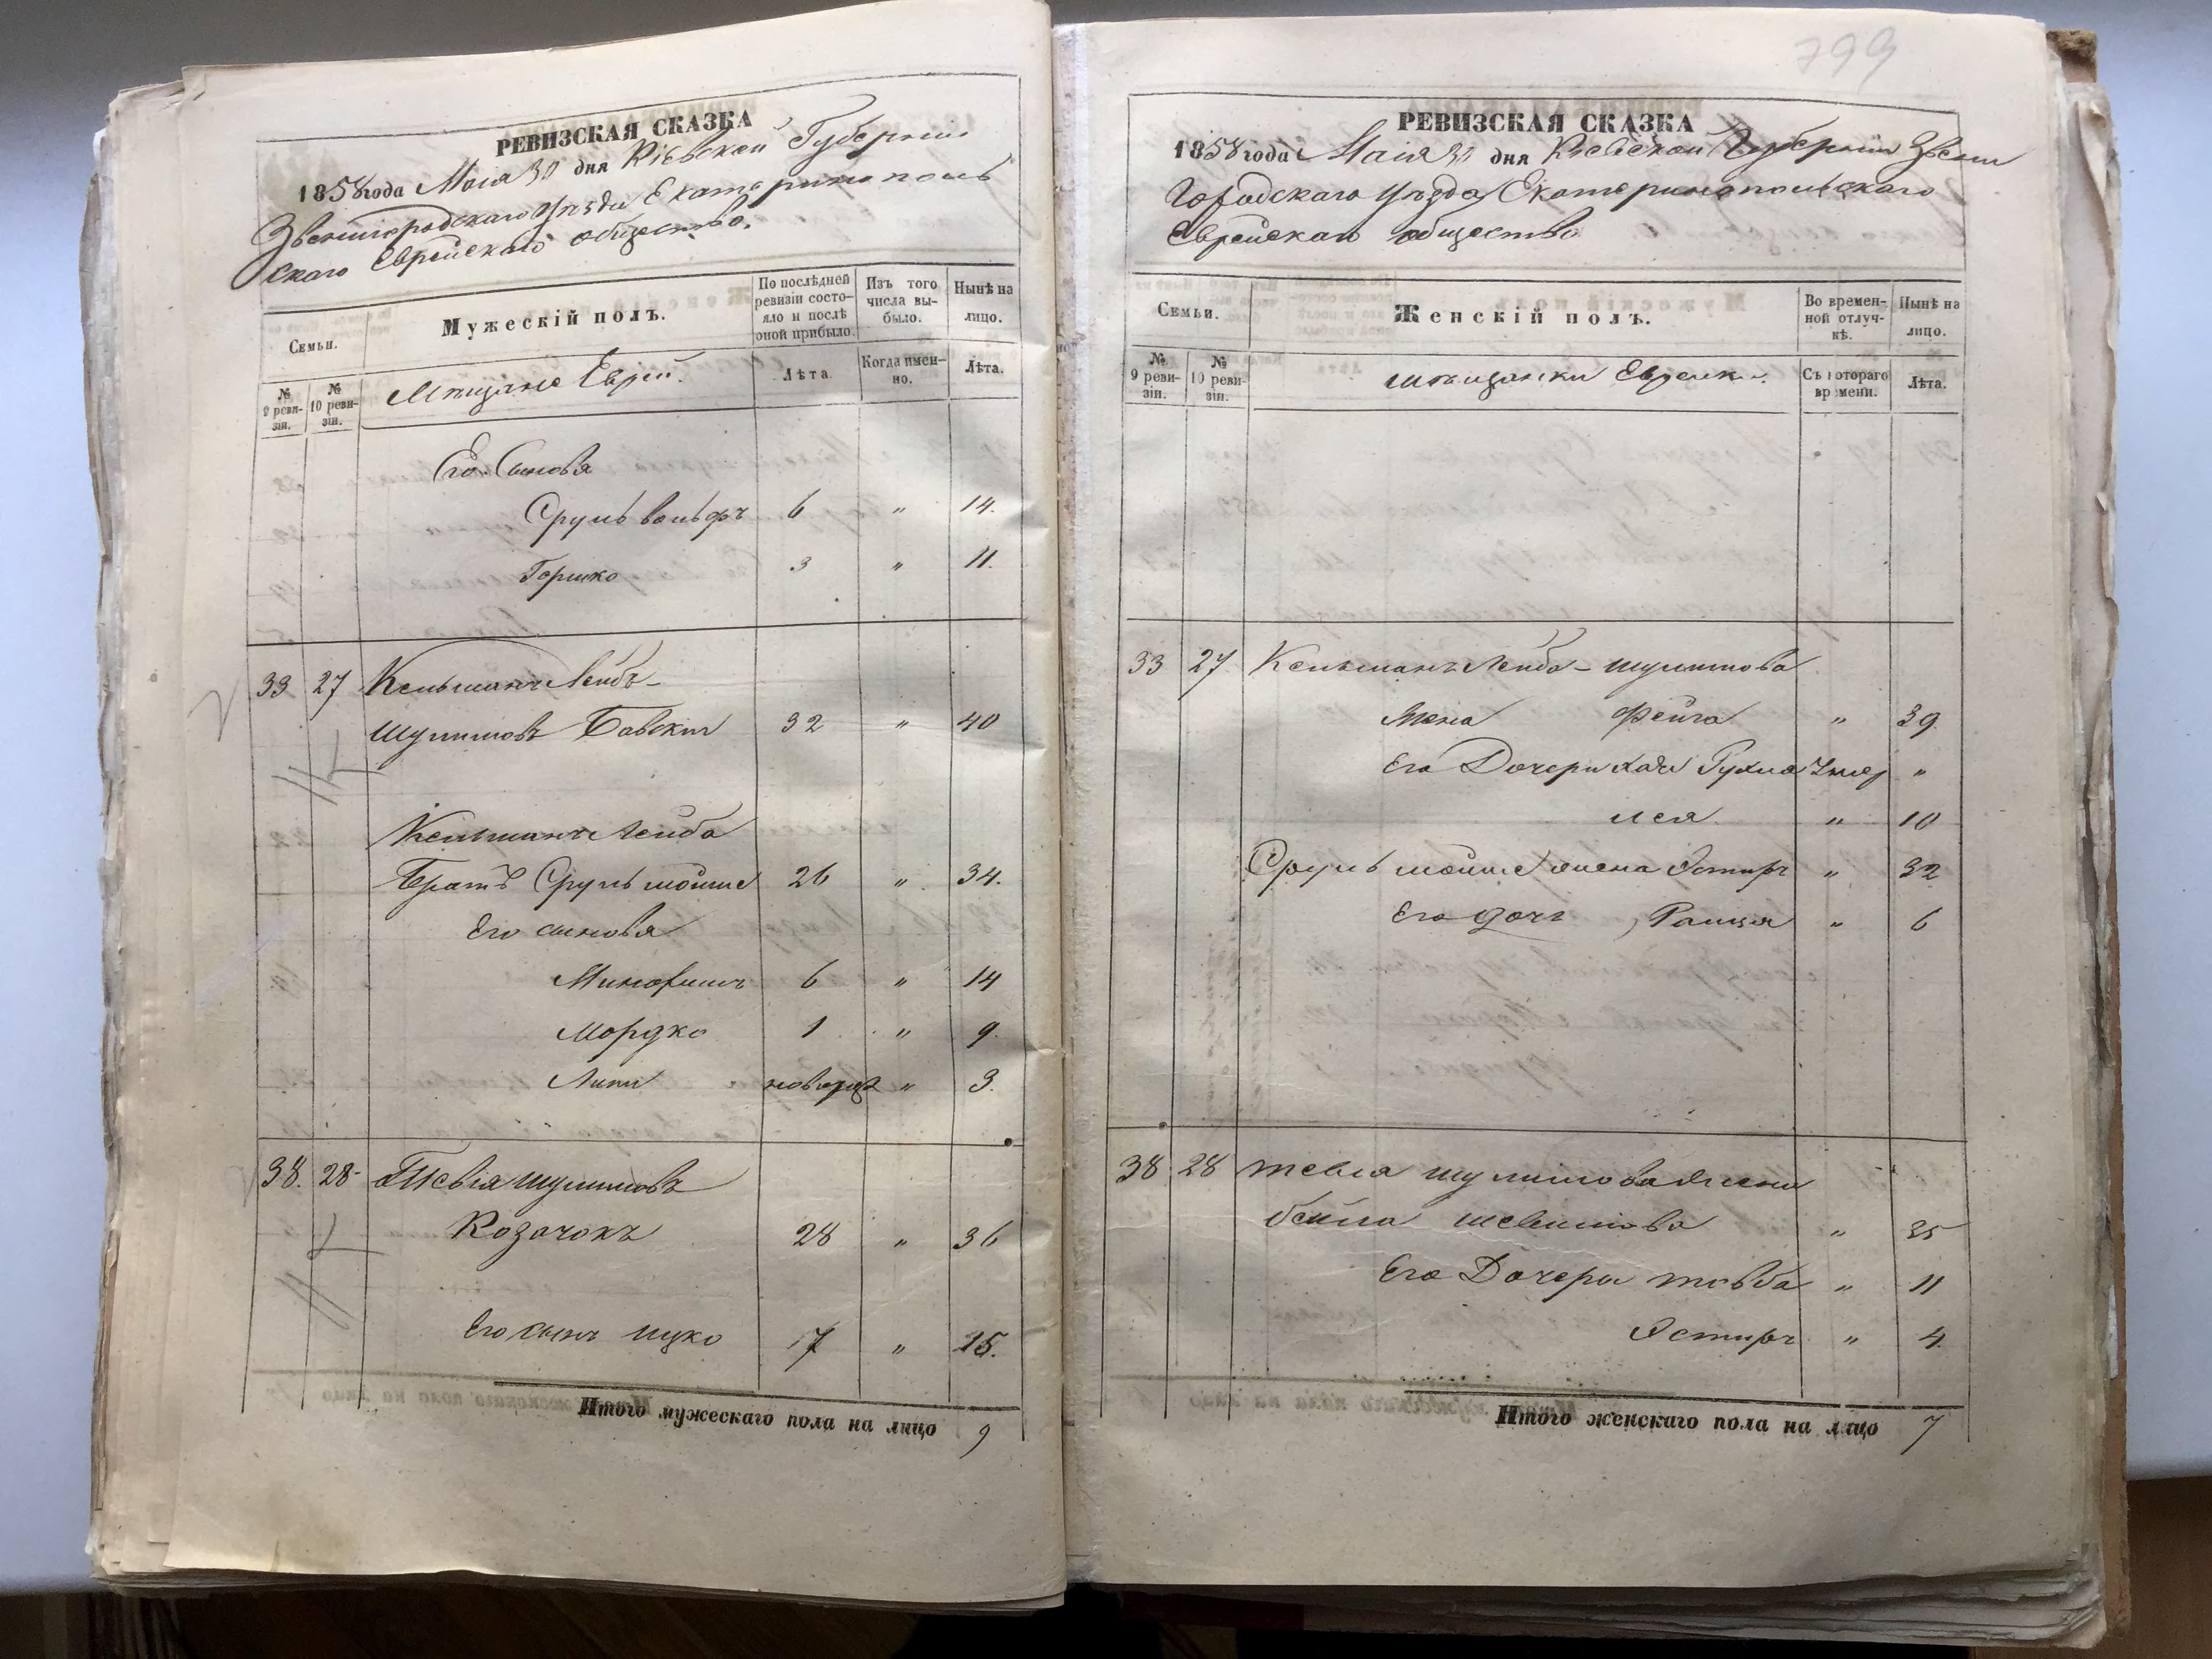 799
РЕВИЗСКАЯ СКАЗКА
1858 года Маія 30 дня Кіевской Губерніи
Звенигородскаго уѣзда Екатеринополь
скаго Еврейскаго общества.
Семьи.
Мужескій полъ.
По послѣдней ревизіи состояло и послѣ оной прибыло.
Изъ того числа выбыло.
Нынѣ на лицо.
№ 9 ревизіи.
№ 10 ревизіи.
Мѣщане Евреи.
Лѣта
Когда именно.
Лѣта.
Его Сынова
Срулъ вольфъ 6 " 14.
Гершко 3 " 11.
33 27 Кельманъ Лейбъ-
Шулимовъ Бавскій 32 " 40
Кельманъ Лейба
Братъ Срулъ мойше 26 " 34.
Его сынова
6 " 14
Мордко 1 " 9.
Липа новорожд " 3.
38. 28 Тевья Шулимовъ
Козачокъ 28 " 36
Его сынъ Ицко 7 " 15.
Итого мужескаго пола на лицо 9
РЕВИЗСКАЯ СКАЗКА
1858 года Маія 30 дня Кіевской Губерніи Звени
городскаго уѣзда Екатеринопольскаго
Еврейскаго общества
Семьи.
Женскій полъ.
Во временной отлучкѣ.
Нынѣ на лицо.
№ 9 ревизіи.
№ 10 ревизіи.
мѣщанки Еврейки.
Съ котораго времени.
Лѣта.
33 27 Кельманъ Лейба-шулимова
Жена Фейга " 39.
Его Дочери Хая Рухля Умер "
Лея " 10
Срулъ мойше жена Эстиръ " 32
Его дочь Рашя " 6
38 28 Тевья шулимова жена
бейла " 35
Его Дочери товба " 11
Эстиръ " 4.
Итого женскаго пола на лицо 7